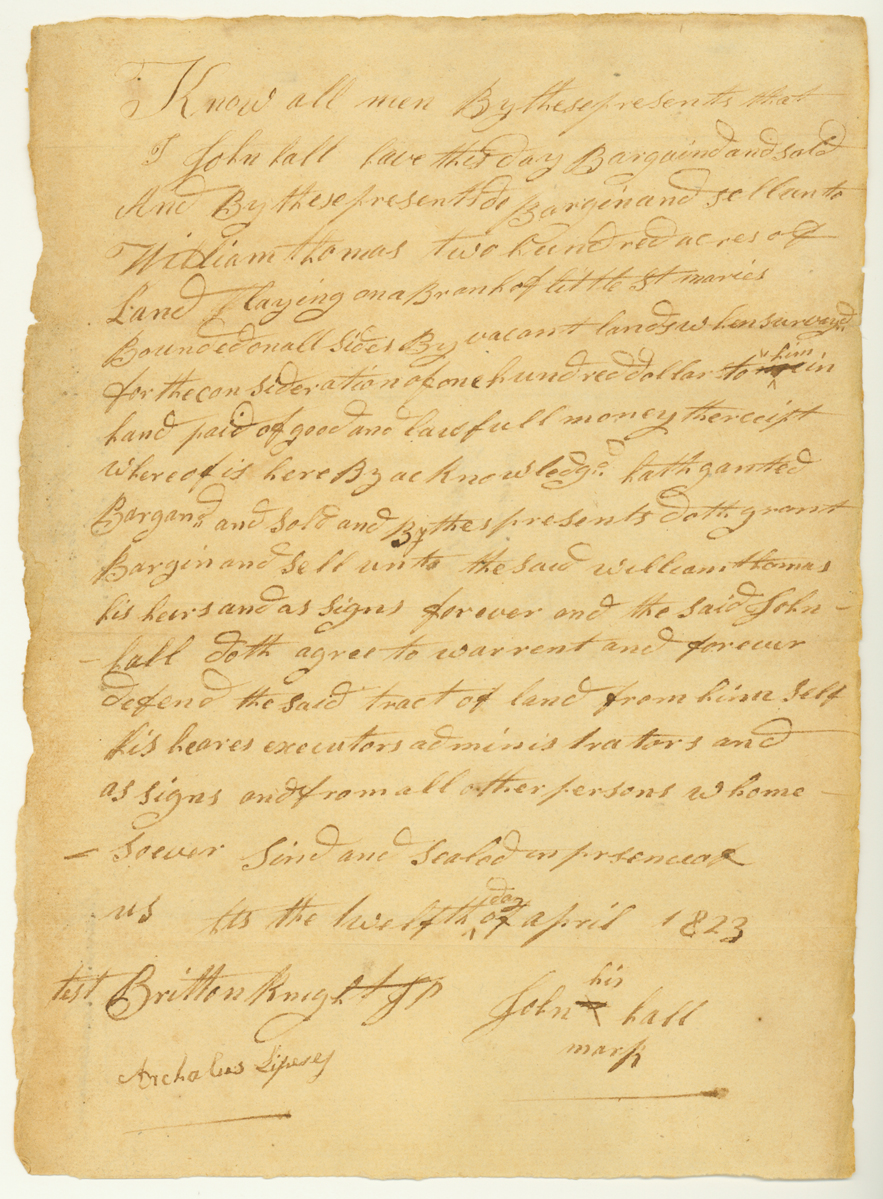 Know all men By these presents that
I John hall have this day Bargaind and sold
And By these presents do Bargin and sell unto
William thomas two hundred acres of
Land laying on a Branh of little St maries
Bounded on all sides By vacant lands when survayd
for the consideration of one hundred dollars to him in
hand paid of good and lawfull money the receipt
whereof is here By acknowledgd hath ganted
Bargand and sold and By thes presents doth grant
Bargin and sell unto the said william thomas
his heirs and as signs forever and the said John
hall doth agree to warrent and forevur
defend the said tract of land from him self
his heares executors adminis trators and
as signs and from all other persons whome
soever Sind and Sealed in prsence of
us this the twelfth day of april 1823
test Britton Knight JP
his
John X hall
mark
Archalus Lipsey